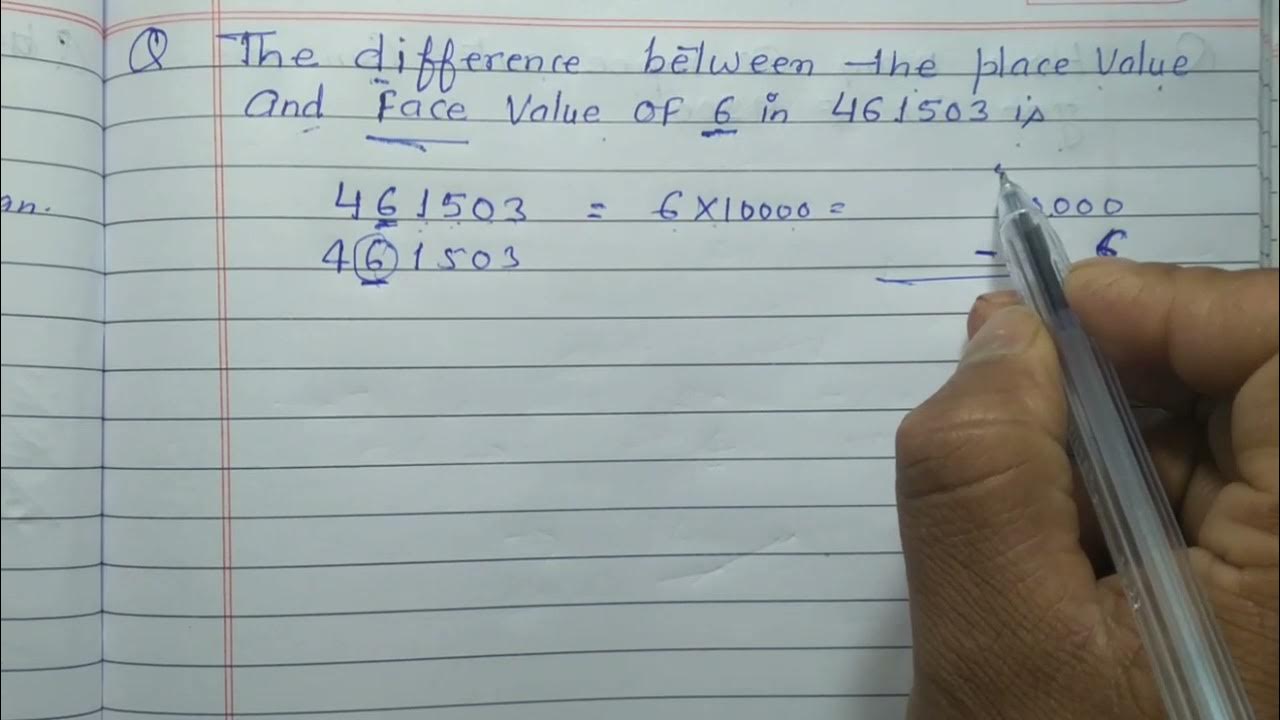 an.
Q The difference between the place value
and Face value of 6 in 461503 is
461503 = 6×10000 = 0000
461503 - 6